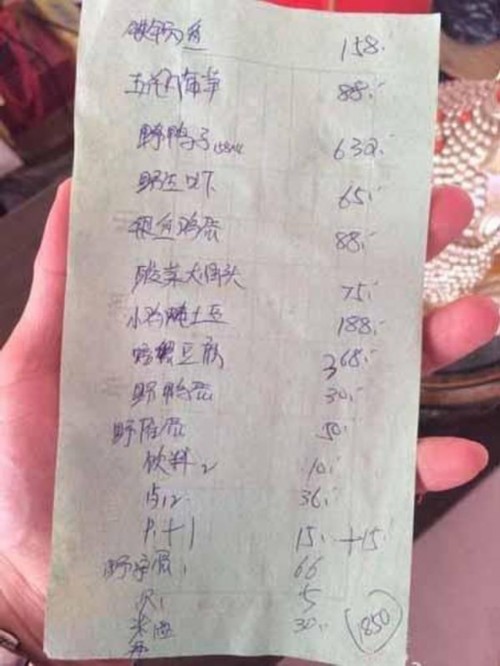 158.
五花肉 88.
野鸭子 158×4 632.
野 以下 65.
银鱼鸡蛋 88.
酸菜大骨头 75.
小鸡炖土豆 188.
螃蟹豆腐 368.
野鸭蛋 30.
野雁蛋 50.
饮料2 10.
12 36.
P+1 15. +15.
野 蛋 66
5
米 30. 1850